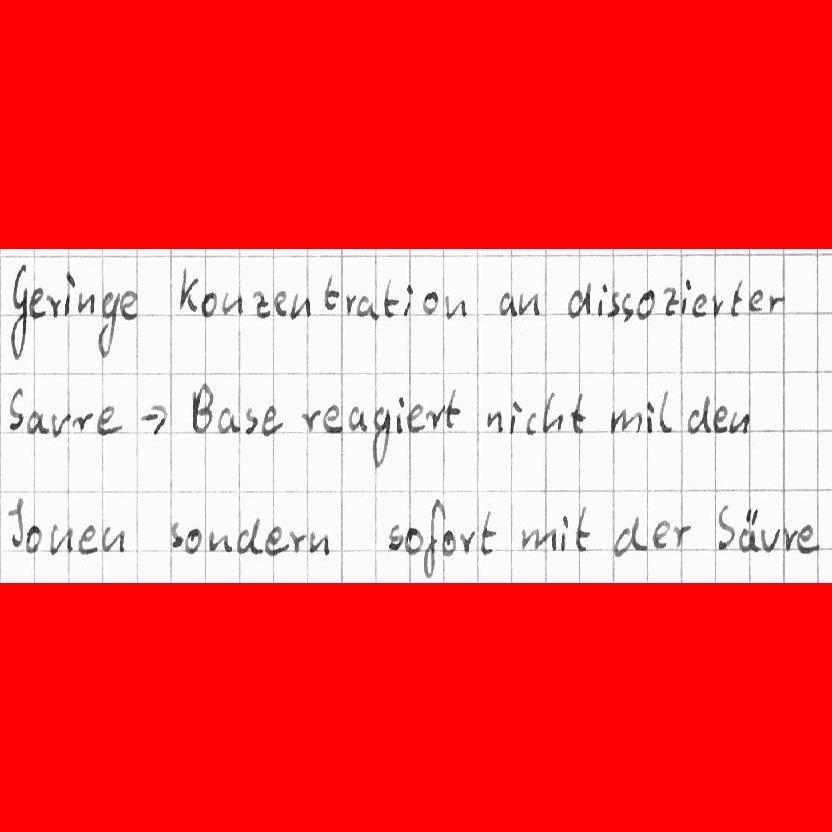 Geringe Konzentration an dissozierter
Saure → Base reagiert nicht mit den
Ionen sondern sofort mit der Säure